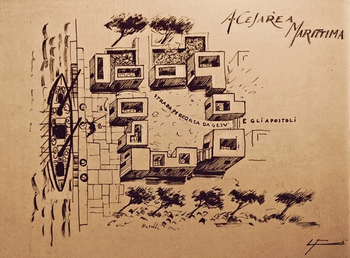 A CESAREA
MARITTIMA
STRADA PERCORSA DA GESU'
E GLI APOSTOLI